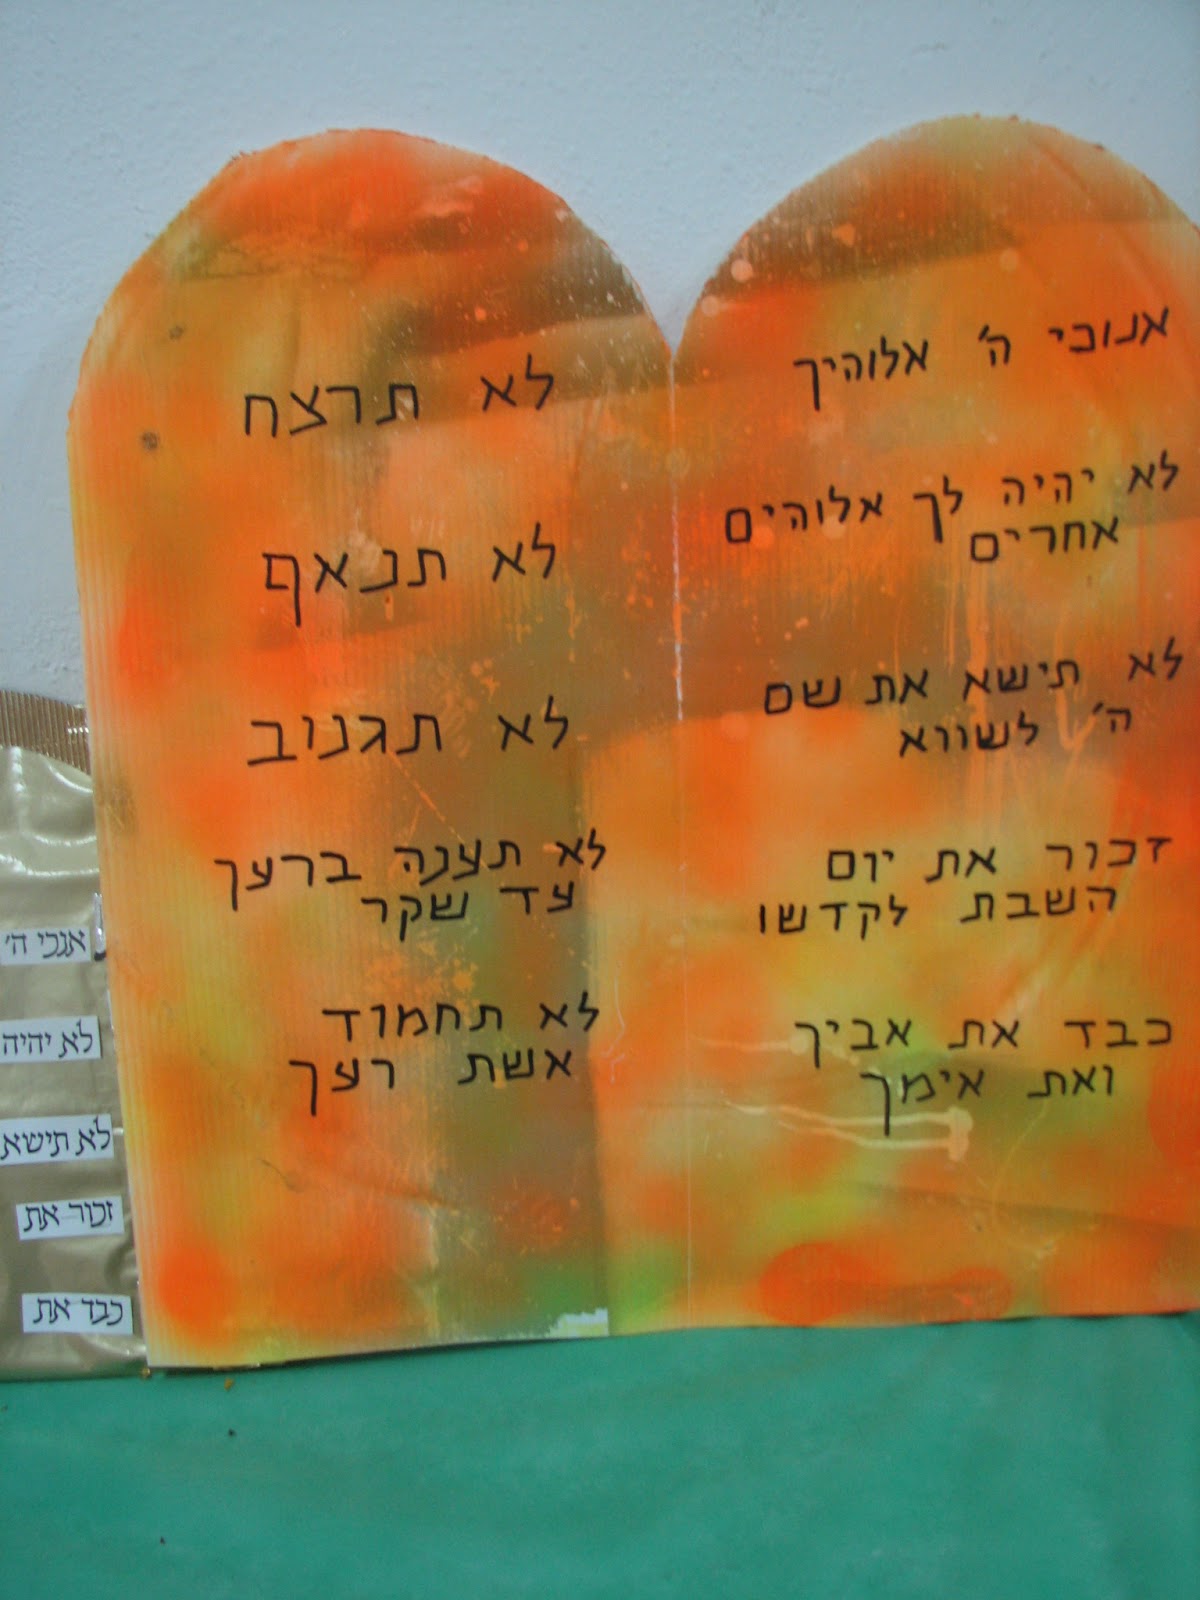 אנוכי ה' אלוהיך
לא יהיה לך אלוהים
אחרים
לא תישא את שם
ה' לשווא
זכור את יום
השבת לקדשו
כבד את אביך
ואת אימך
לא תרצח
לא תנאף
לא תגנוב
לא תענה ברעך
עד שקר
לא תחמוד
אשת רעך
אנכי ה'
לא יהיה
לא תישא
זכור את
כבד את